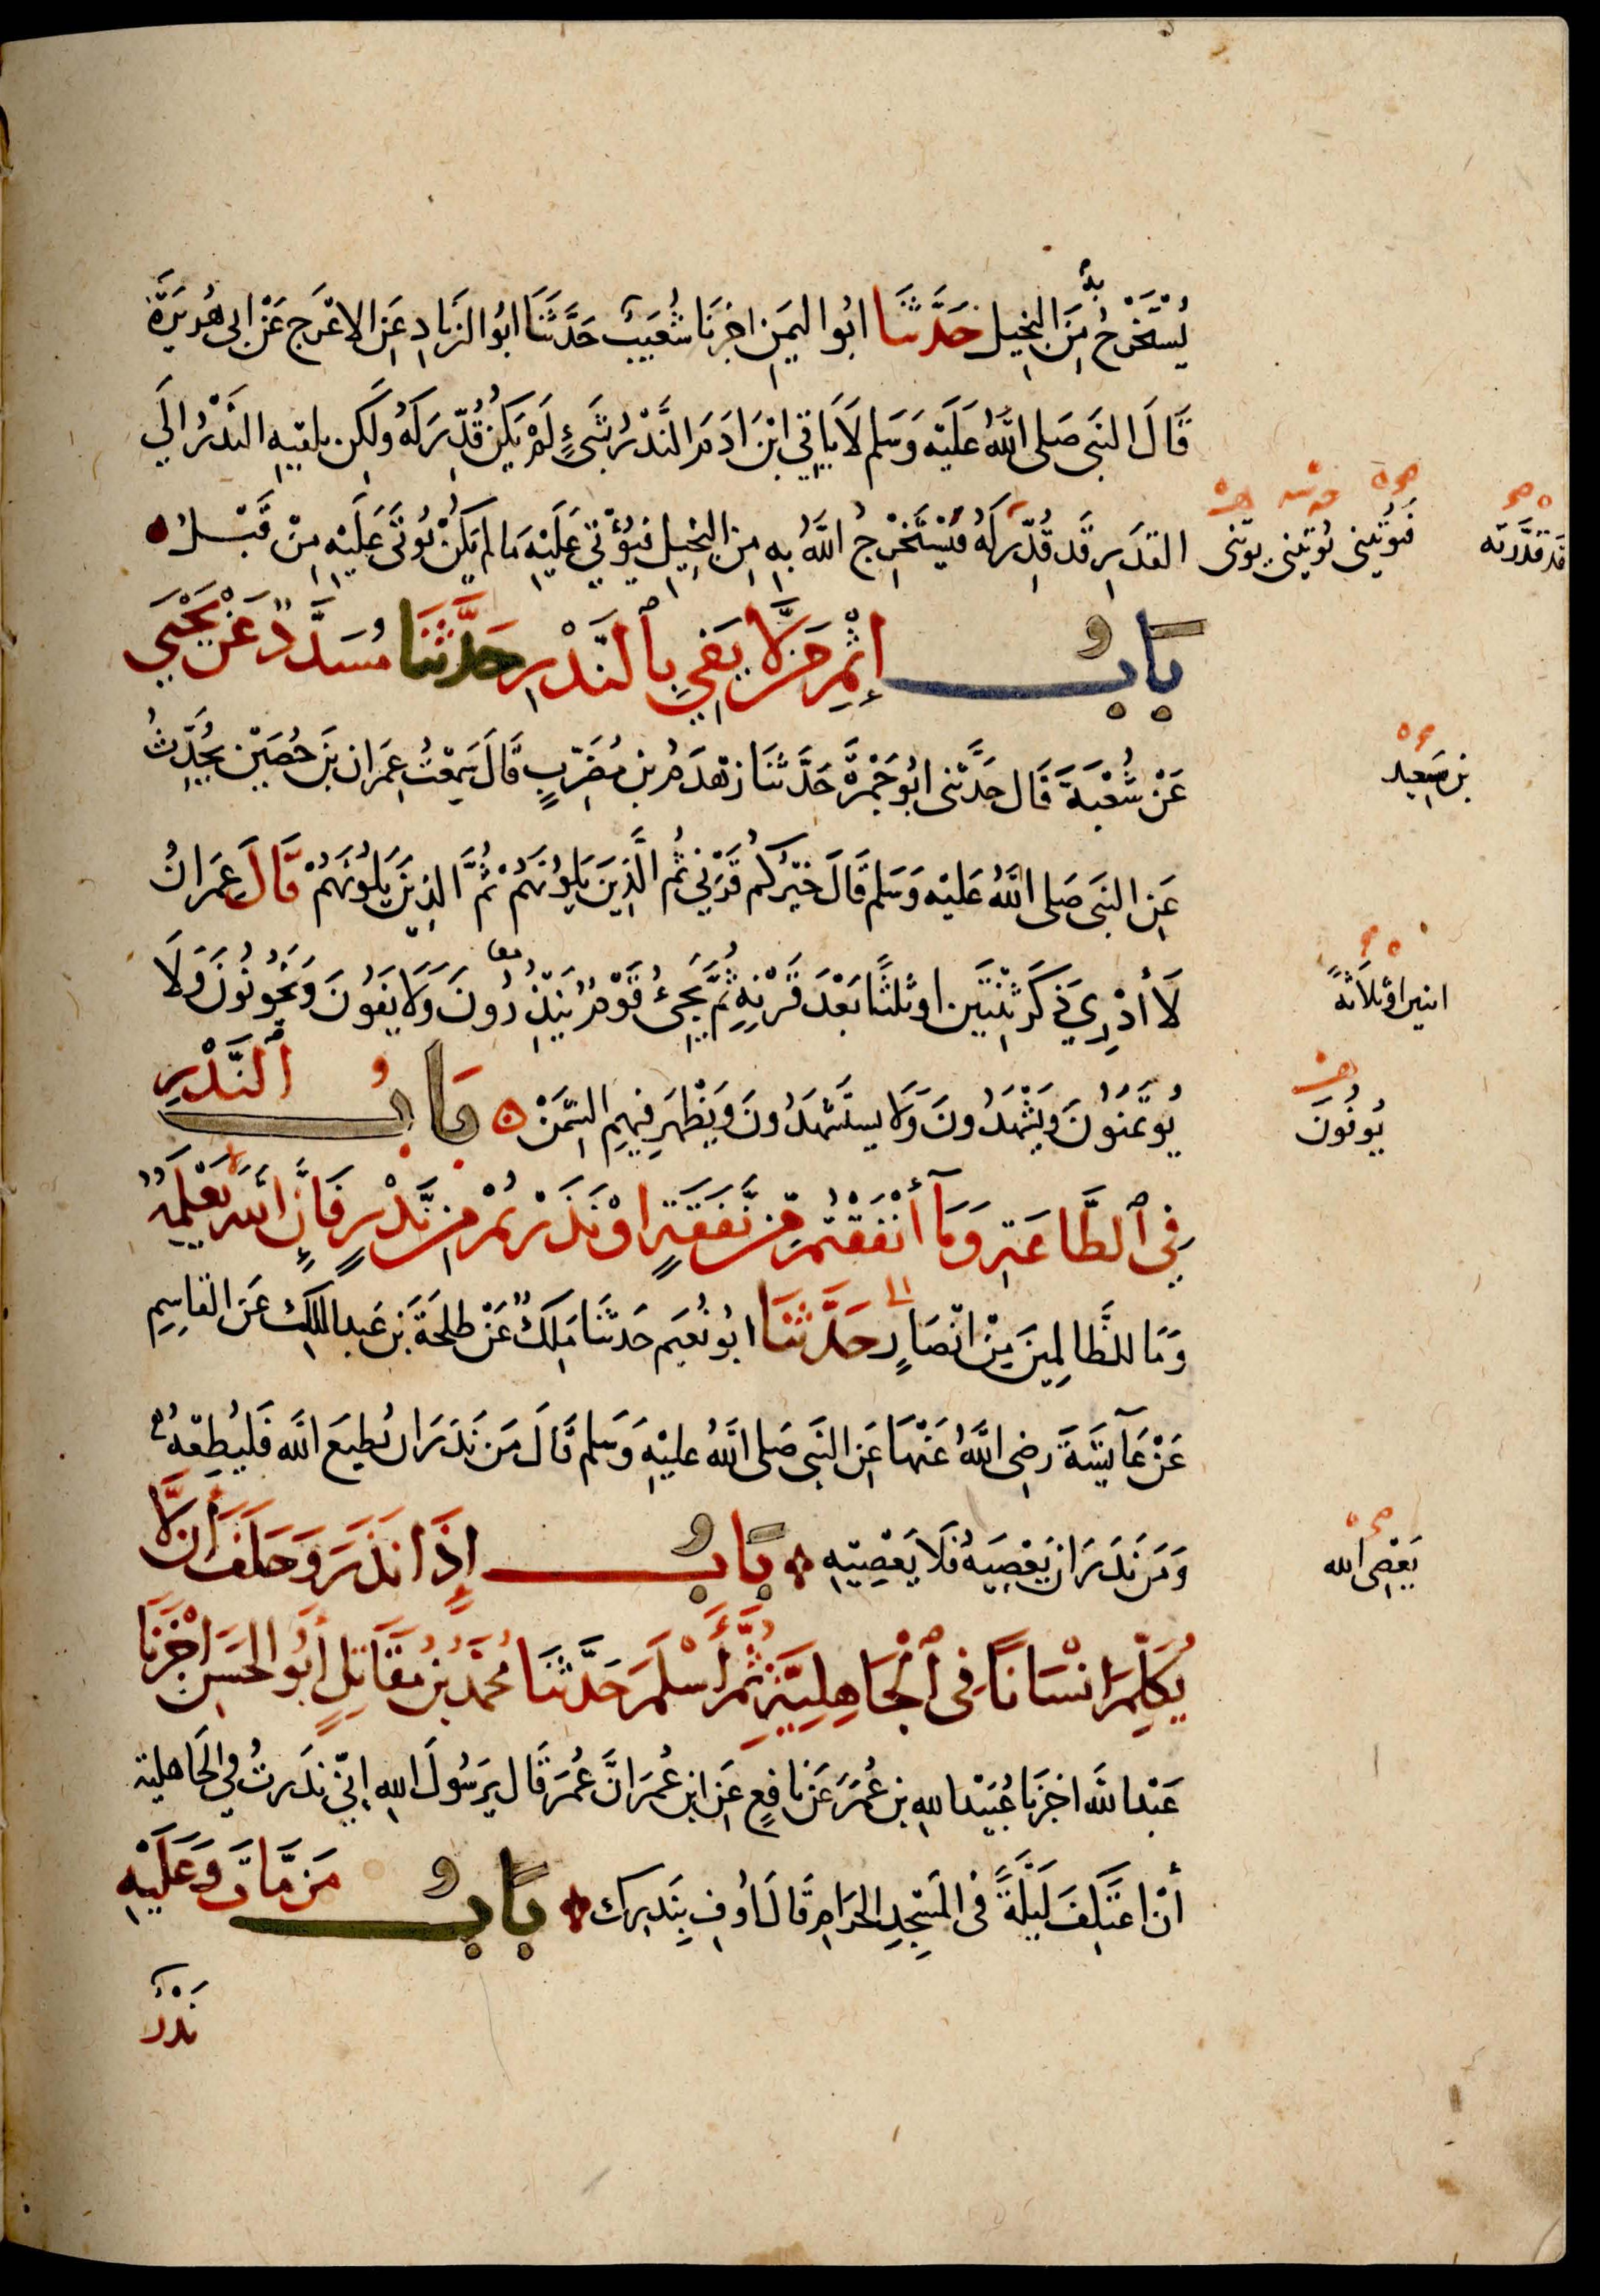 يُسْتَخْرَجُ بِهِ مِنَ الْبَخِيلِ حَدَّثَنَا ابُو اليمَنِ اخبرَنَا شُعَيْبٌ حَدَّثَنَا ابُو الزنادِ عَنِ الاعْرَجِ عَنْ ابى هُرَيْرَةَ
قَالَ النبَى صَلى اللّٰهُ عَلَيْهِ وَسَلم لَا يَاتِي ابْنَ ادَمَ النَّذْرُ بِشَىْءٍ لَمْ يَكُنْ قُدِّرَ لَهُ ولَكِن يلقيهِ النَّذْرُ الَي
القدَرِ قَد قُدِّرَ لَهُ فَيَسْتَخْرِجُ اللّٰهُ بِهِ مِنَ البَخِيلِ فَيُؤْتِي عَلَيْهِ مَا لم يَكُنْ يُوتَى عَلَيْهِ مِنْ قَبْلُ
فَيُوتِينى يُوتِينى يوتنى
قد قَدَّرته
بَابُ إِثْمِ مَن لَّا يَفِي بِٱلنَّذْرِ حَدَّثَنَا مُسَدَّدٌ عَنْ يَحْيَي
بن سَعِيد
عَنْ شُعْبَةَ قَال حَدَّثَنى ابُو جَمْرَةَ حَدَّثنَا زهْدَمُ بن مُضَرِّبٍ قَالَ سَمِعْتُ عِمَرَان بنَ حُصَيْن يُحَدِّثُ
عَنِ النبَى صَلى اللّٰهُ عَليْه وَسَلم قَالَ خَيْرُكُم قَرْنِي ثُمَّ الَّذِينَ يَلُونَهُمْ ثُمَّ الذِينَ يَلُونَهُمْ قَالَ عِمَرَانُ
لَا أدْرِي ذَكَرَ ثِنْتَيْنِ اوثلثًا بَعْدَ قَرْنِهِ ثُمَّ يَجِىُ قَوْمٌ يَنْذُرُونَ وَلَا يَفُونَ وَيَخُونُونَ وَلَا
معا
اثنين اوثلَاثةً
يُوتَمَنُونَ وَيَشْهَدُونَ وَلَا يستَشْهَدُونَ وَيَظْهَر فِيهِم السِّمَنْ بَابُ ٱلنَّذْرِ
يُوفُونَ
فِي ٱلطَّاعَةِ وَمَآ أَنْفَقْتُم مِّن نَّفَقَةٍ اوْ نَذَرْتُمْ مِن نَّذْرٍ فَإِنَّ اللَّهَ يَعْلَمُهُ
وَمَا للظَّالِمِينَ مِنْ انْصَارٍ حَدَّثَنَا ابُو نُعَيم حَدثَنَا مَالِكٌ عَنْ طلحَةَ بنِ عَبد المَلِكِ عَن القَاسِمِ
عَنْ عَآيِشَةَ رضِى اللّٰهُ عَنْهَا عَنِ النبَى صَلى اللّٰهُ عليْهِ وَسَلم قَالَ مَن نَذَرَ ان يُطِيعَ اللّٰه فَليُطِعْهُ
وَمَن نَذَرَ ان يَعْصِيَهُ فَلَا يَعْصِيهِ بَابُ إِذَا نَذَرَ وَحَلَفَ أَن لَّا
يَعْصِىَ الله
يُكَلِّمَ انْسَانًا فِى ٱلْجَاهِلِيَّةِ ثُمَّ أَسْلَمَ حَدَّثَنَا مُحَمَّدُ بْنُ مُقَاتِلٍ أَبُو الحَسَنِ اخْبَرَنَا
عَبْدا للّٰه اخبَرَنا عُبَيْدا للهِ بن عُمَرَ عَن نَافِعٍ عَنِ ابْنِ عُمَرَ انَّ عُمَرَ قَال يَرَسُولَ اللهِ اِنِّي نذَرتُ فِي الجَاهليةِ
أنْ اعْتَكِفَ لَيْلَةً فى المَسْجِدِ الحَرَامِ قَالَ أوْفِ بِنَذرِكَ بَابُ مَن مَّاتَ وَعَلَيْهِ
نَذْرٌ